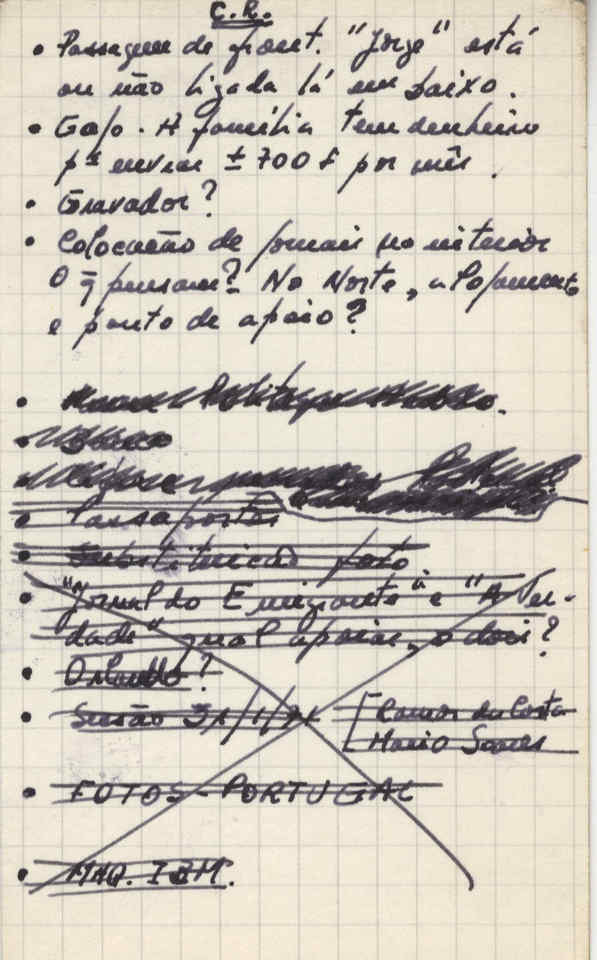 C.R.
• Passagem de front. "Jorge" está
ou não ligada lá em baixo.
• Gajo. A família tem denheiro
pª enviar ± 700 F por mês.
• Gravador?
• Colocação de jornais no interior
O q̃ pensam? No Norte, alojamento
e ponto de apoio?
• Passaportes
• Substituição foto
• "Jornal do Emigrante" e "A Ver-
dade" qual apoiar, o dois?
• Orlando?
• Sessão 31/1/71 [Ramos da Costa
Mario Soares
• FOTOS - PORTUGAL
• MAQ. IBM.